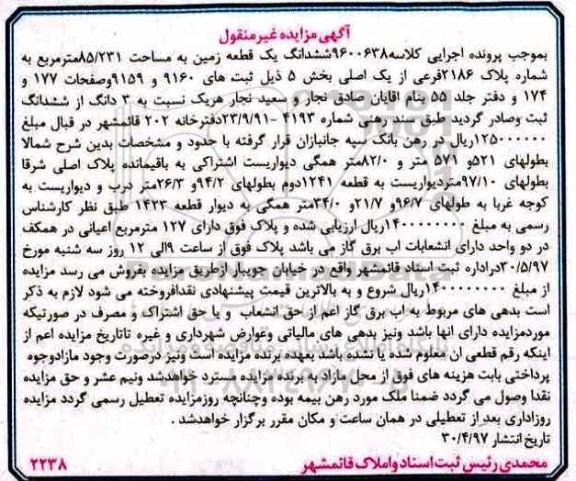 آگهی مزایده غیر منقول
بموجب پرونده اجرایی کلاسه۹۶۰۰۶۳۸ششدانگ یک قطعه زمین به مساحت ۸۵/۲۳۱مترمربع به
شماره پلاک ۲۱۸۶فرعی از یک اصلی بخش ۵ ذیل ثبت های ۹۱۶۰ و ۹۱۵۹وصفحات ۱۷۷ و
۱۷۴ و دفتر جلد ۵۵ بنام اقایان صادق نجار و سعید نجار هریک نسبت به ۳ دانگ از ششدانگ
ثبت وصادر گردید طبق سند رهنی شماره ۴۱۹۳ -۲۳/۹/۹۱دفترخانه ۲۰۲ قائمشهر در قبال مبلغ
۱۲۵۰۰۰۰۰۰۰ریال در رهن بانک سپه جانبازان قرار گرفته با حدود و مشخصات بدین شرح شمالا
بطولهای ۵۲۱و ۵۷۱ متر و ۸۲/۰متر همگی دیواریست اشتراکی به باقیمانده پلاک اصلی شرقا
بطولهای ۹۷/۱۰متردیواریست به قطعه ۱۲۴۱دوم بطولهای ۹۴/۲و ۲۶/۳متر درب و دیواریست به
کوچه غربا به طولهای ۹۶/۷و ۲۱/۷و ۳۴/۰متر همگی به دیوار قطعه ۱۴۳۳ طبق نظر کارشناس
رسمی به مبلغ ۱۴۰۰۰۰۰۰۰۰ریال ارزیابی شده و پلاک فوق دارای ۱۲۷ مترمربع اعیانی در همکف
در دو واحد دارای انشعابات اب برق گاز می باشد پلاک فوق از ساعت ۹الی ۱۲ روز سه شنبه مورخ
۳۰/۵/۹۷دراداره ثبت اسناد قائمشهر واقع در خیابان جویبار ازطریق مزایده بفروش می رسد مزایده
از مبلغ ۱۴۰۰۰۰۰۰۰۰ریال شروع و به بالاترین قیمت پیشنهادی نقدافروخته می شود لازم به ذکر
است بدهی های مربوط به اب برق گاز اعم از حق انشعاب و یا حق اشتراک و مصرف در صورتیکه
موردمزایده دارای انها باشد ونیز بدهی های مالیاتی وعوارض شهرداری و غیره تاتاریخ مزایده اعم از
اینکه رقم قطعی ان معلوم شده یا نشده باشد بعهده برنده مزایده است ونیز درصورت وجود مازادوجوه
پرداختی بابت هزینه های فوق از محل مازاد به برنده مزایده مسترد خواهدشد ونیم عشر و حق مزایده
نقدا وصول می گردد ضمنا ملک مورد رهن بیمه بوده وچنانچه روزمزایده تعطیل رسمی گردد مزایده
روزاداری بعد از تعطیلی در همان ساعت و مکان مقرر برگزار خواهدشد .
تاریخ انتشار ۳۰/۴/۹۷
محمدی رئیس ثبت اسناد و املاک قائمشهر
۲۲۳۸